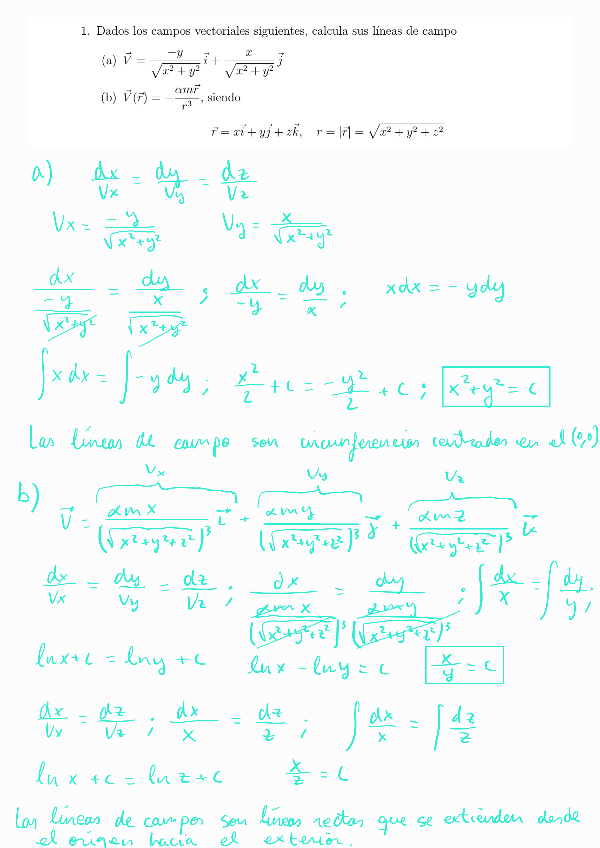 1. Dados los campos vectoriales siguientes, calcula sus líneas de campo
(a) \vec{V} = \frac{-y}{\sqrt{x^2+y^2}} \vec{i} + \frac{x}{\sqrt{x^2+y^2}} \vec{j}
(b) \vec{V}(\vec{r}) = -\frac{\alpha m \vec{r}}{r^3}, siendo
\vec{r} = x\vec{i} + y\vec{j} + z\vec{k}, r = |\vec{r}| = \sqrt{x^2+y^2+z^2}
a) \frac{dx}{Vx} = \frac{dy}{Vy} = \frac{dz}{Vz}
Vx = \frac{-y}{\sqrt{x^2+y^2}} Vy = \frac{x}{\sqrt{x^2+y^2}}
\frac{dx}{\frac{-y}{\sqrt{x^2+y^2}}} = \frac{dy}{\frac{x}{\sqrt{x^2+y^2}}} ; \frac{dx}{-y} = \frac{dy}{x} ; xdx = -ydy
\int x dx = \int -y dy ; \frac{x^2}{2} + c = \frac{-y^2}{2} + c ; x^2+y^2 = c
Las líneas de campo son circunferencias centradas en el (0,0)
b) \vec{V} = \overbrace{\frac{\alpha m x}{(\sqrt{x^2+y^2+z^2})^3}}^{Vx} \vec{i} + \overbrace{\frac{\alpha m y}{(\sqrt{x^2+y^2+z^2})^3}}^{Vy} \vec{j} + \overbrace{\frac{\alpha m z}{(\sqrt{x^2+y^2+z^2})^3}}^{Vz} \vec{k}
\frac{dx}{Vx} = \frac{dy}{Vy} = \frac{dz}{Vz} ; \frac{dx}{\frac{\alpha m x}{(\sqrt{x^2+y^2+z^2})^3}} = \frac{dy}{\frac{\alpha m y}{(\sqrt{x^2+y^2+z^2})^3}} ; \int \frac{dx}{x} = \int \frac{dy}{y} ;
ln x + c = ln y + c ln x - ln y = c \frac{x}{y} = c
\frac{dx}{Vx} = \frac{dz}{Vz} ; \frac{dx}{x} = \frac{dz}{z} ; \int \frac{dx}{x} = \int \frac{dz}{z}
ln x + c = ln z + c \frac{x}{z} = c
Las líneas de campos son líneas rectas que se extienden desde
el origen hacia el exterior.